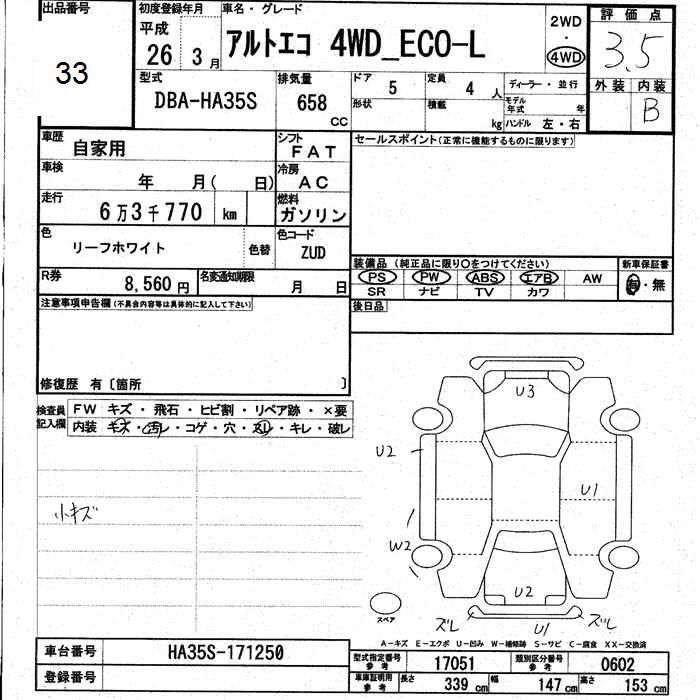 出品番号
33
初度登録年月
平成
26 3 月
車名・グレード
アルトエコ 4WD_ECO-L
2WD
・
4WD
評価点
3.5
外装 内装
B
型式
DBA-HA35S
排気量
658
CC
ドア
5
定員
4 人
ディーラー・並行
形状
積載
kg
モデル年式
年
ハンドル 左・右
車歴
自家用
シフト
FAT
車検
年 月( 日)
冷房
AC
走行
6万3千770 km
燃料
ガソリン
色
リーフホワイト
色替
色コード
ZUD
R券
8,560 円
名変通知期限
月 日
セールスポイント(正常に機能するものに限ります)
装備品 (純正品に限り○をつけてください)
PS PW ABS エアB AW
SR ナビ TV カワ
新車保証書
有・無
後日品
注意事項申告欄(不具合内容等は具体的に記入して下さい)
修復歴 有〔箇所 〕
検査員記入欄
FW キズ・飛石・ヒビ割・リペア跡・×要
内装 キズ・汚レ・コゲ・穴・ヌリ・キレ・破レ
小キズ
U3
U2
U1
W2
U2
ズレ
U1
ズレ
スペア
A-キズ E-エクボ U-凹み W-補修跡 S-サビ C-腐食 XX-交換済
車台番号
HA35S-171250
登録番号
型式指定番号
参考
17051
類別区分番号
参考
0602
車庫証明用
参考
長さ
339 cm
幅
147 cm
高さ
153 cm